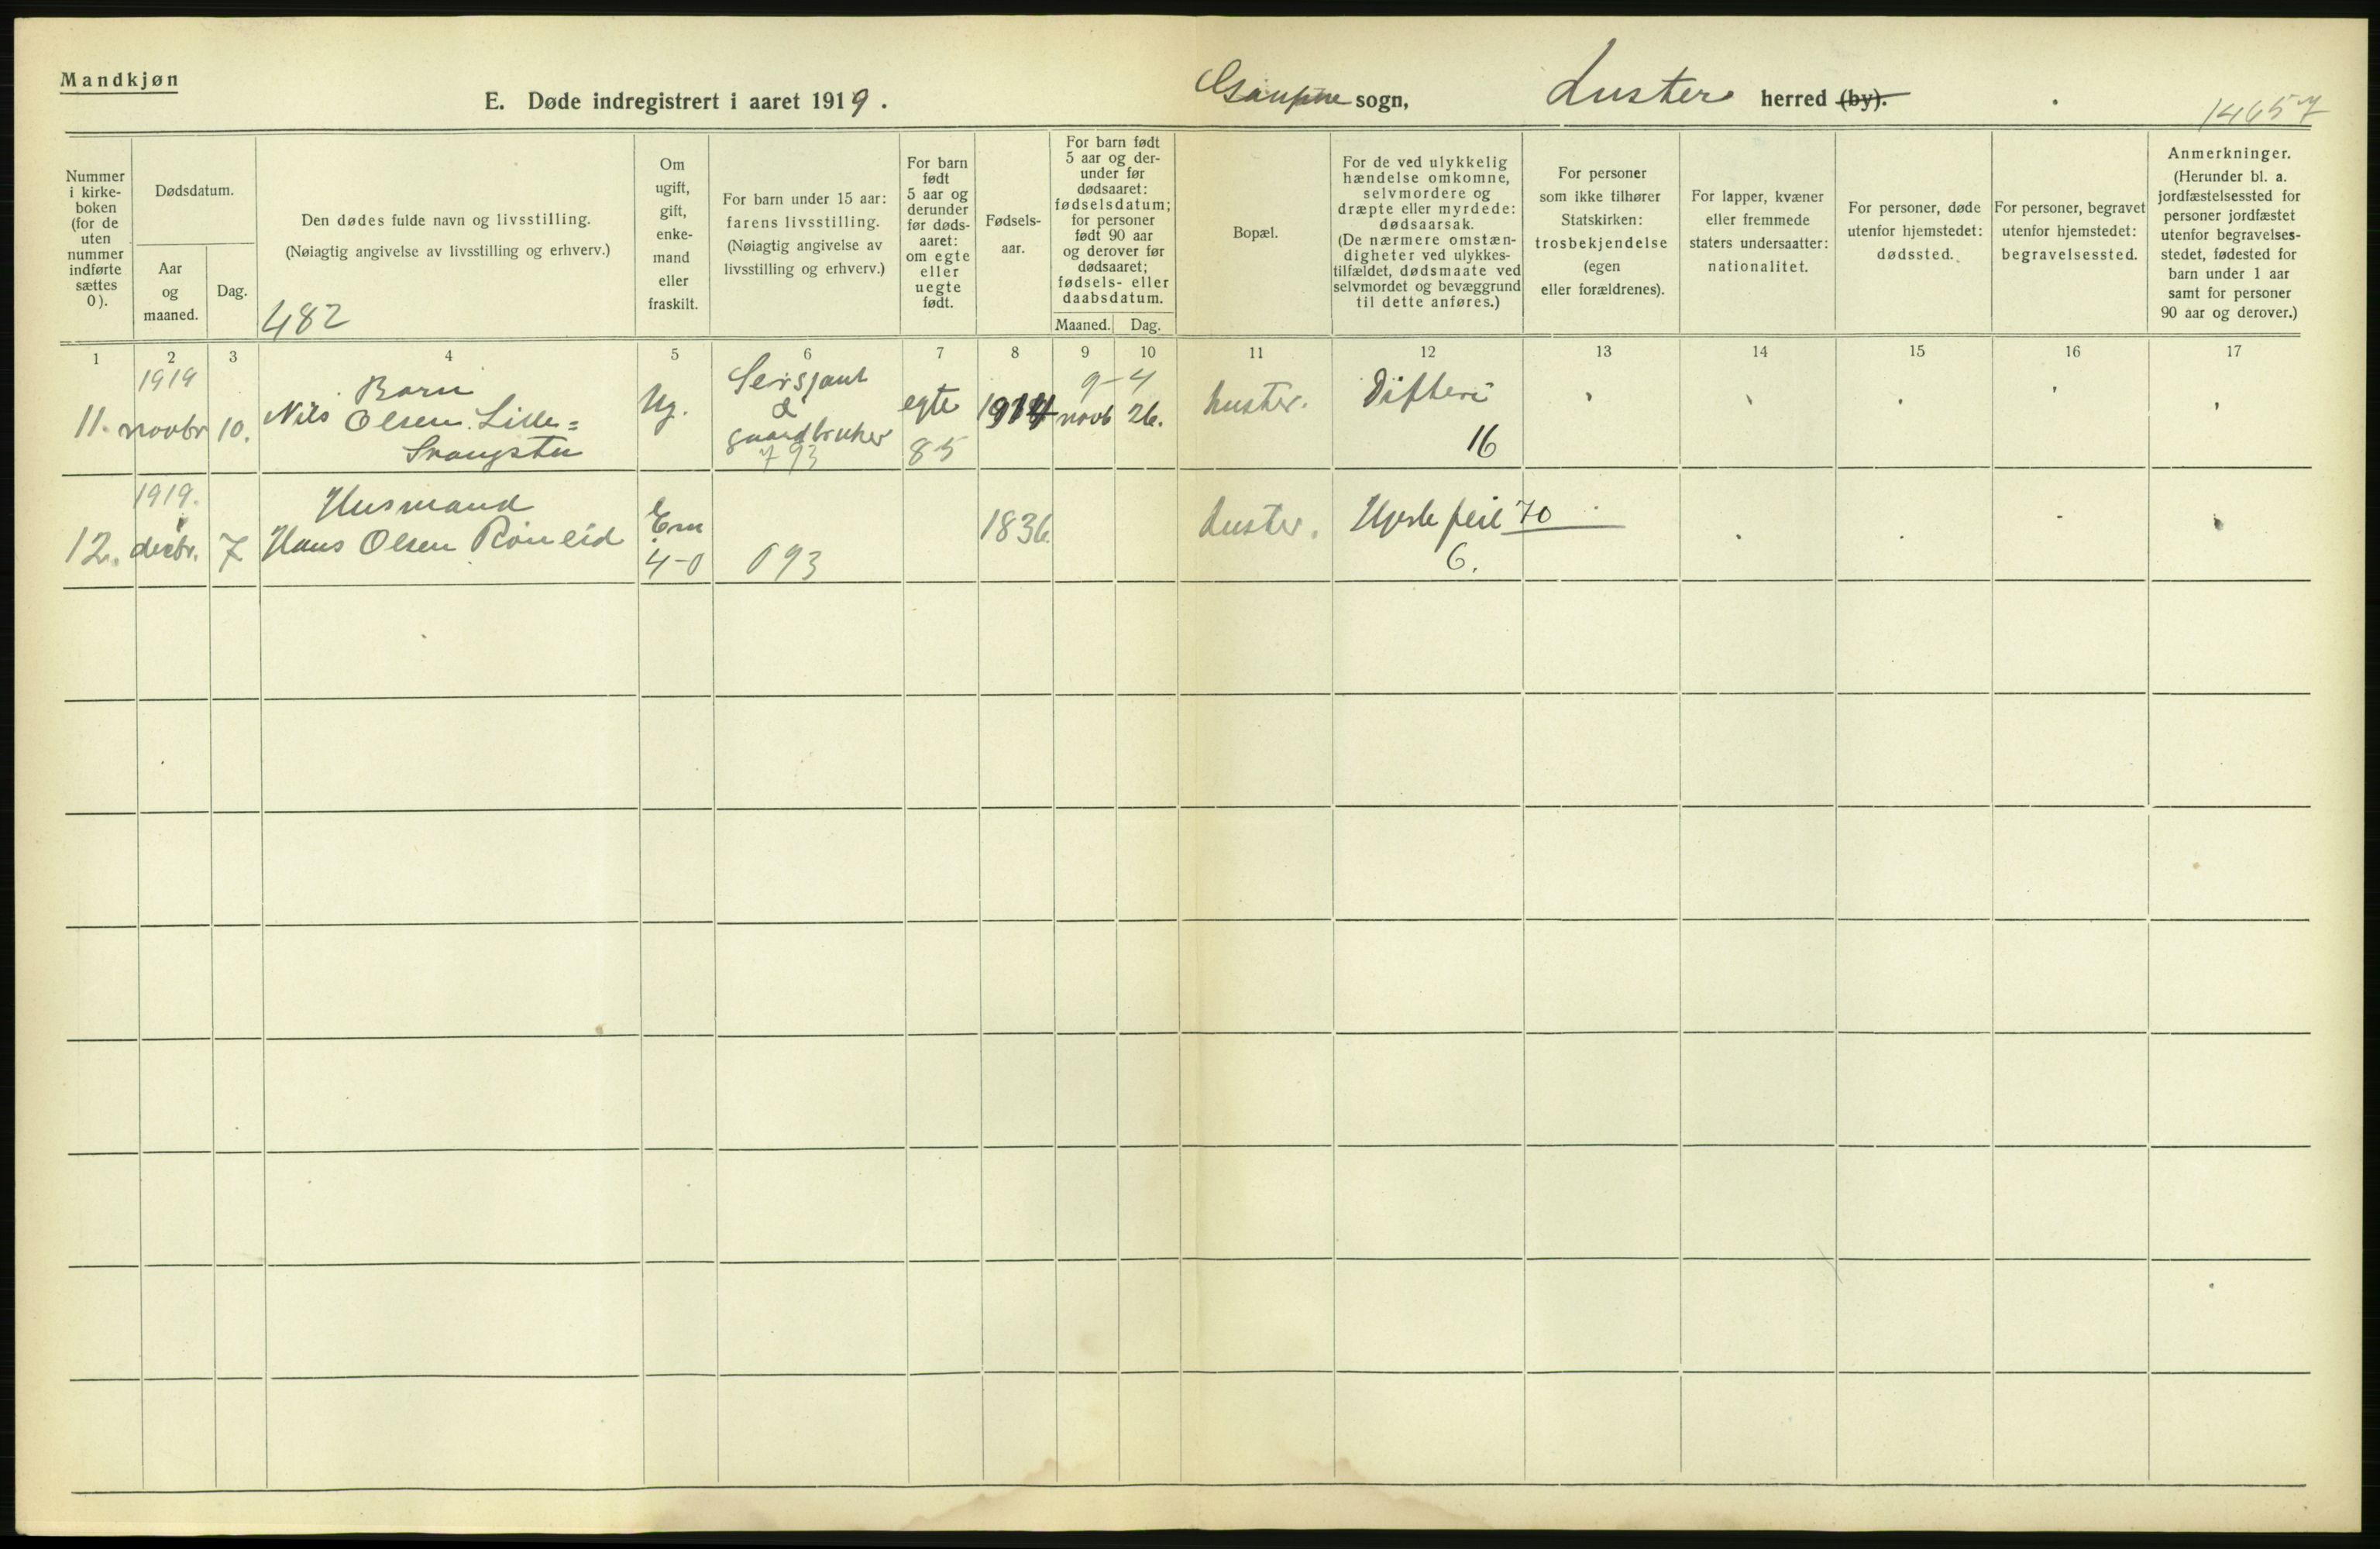 Mandkjøn
E. Døde indregistrert i aaret 1919.
Gaupne sogn,
Luster herred (by).
14657
Nummer i kirke-boken (for de uten nummer indførte sættes 0).
Dødsdatum.
Aar og maaned.
Dag.
Den dødes fulde navn og livsstilling.
(Nøiagtig angivelse av livsstilling og erhverv.)
482
Om ugift, gift, enke-mand eller fraskilt.
For barn under 15 aar: farens livsstilling.
(Nøiagtig angivelse av livsstilling og erhverv.)
For barn født 5 aar og derunder før døds-aaret: om egte eller uegte født.
Fødsels-aar.
For barn født 5 aar og der-under før dødsaaret: fødselsdatum; for personer født 90 aar og derover før dødsaaret; fødsels- eller daabsdatum.
Maaned. Dag.
Bopæl.
For de ved ulykkelig hændelse omkomne, selvmordere og dræpte eller myrdede: dødsaarsak.
(De nærmere omstæn-digheter ved ulykkes-tilfældet, dødsmaate ved selvmordet og bevæggrund til dette anføres.)
For personer som ikke tilhører Statskirken: trosbekjendelse (egen eller forældrenes).
For lapper, kvæner eller fremmede staters undersaatter: nationalitet.
For personer, døde utenfor hjemstedet: dødssted.
For personer, begravet utenfor hjemstedet: begravelsessted.
Anmerkninger.
(Herunder bl. a. jordfæstelsessted for personer jordfæstet utenfor begravelses-stedet, fødested for barn under 1 aar samt for personer 90 aar og derover.)
1 2 3 4 5 6 7 8 9 10 11 12 13 14 15 16 17
1919 Barn Sersjant 9-4
11. novbr 10. Nils Olsen Lille= Ug. & egte 1914 novb 26. Luster. Difteri
gaardbruker
793 85 16
1919. Husmand
12. decbr. 7 Hans Olsen Røneid Em 1836. Luster. Hjertefeil 70
4-0 093 6.